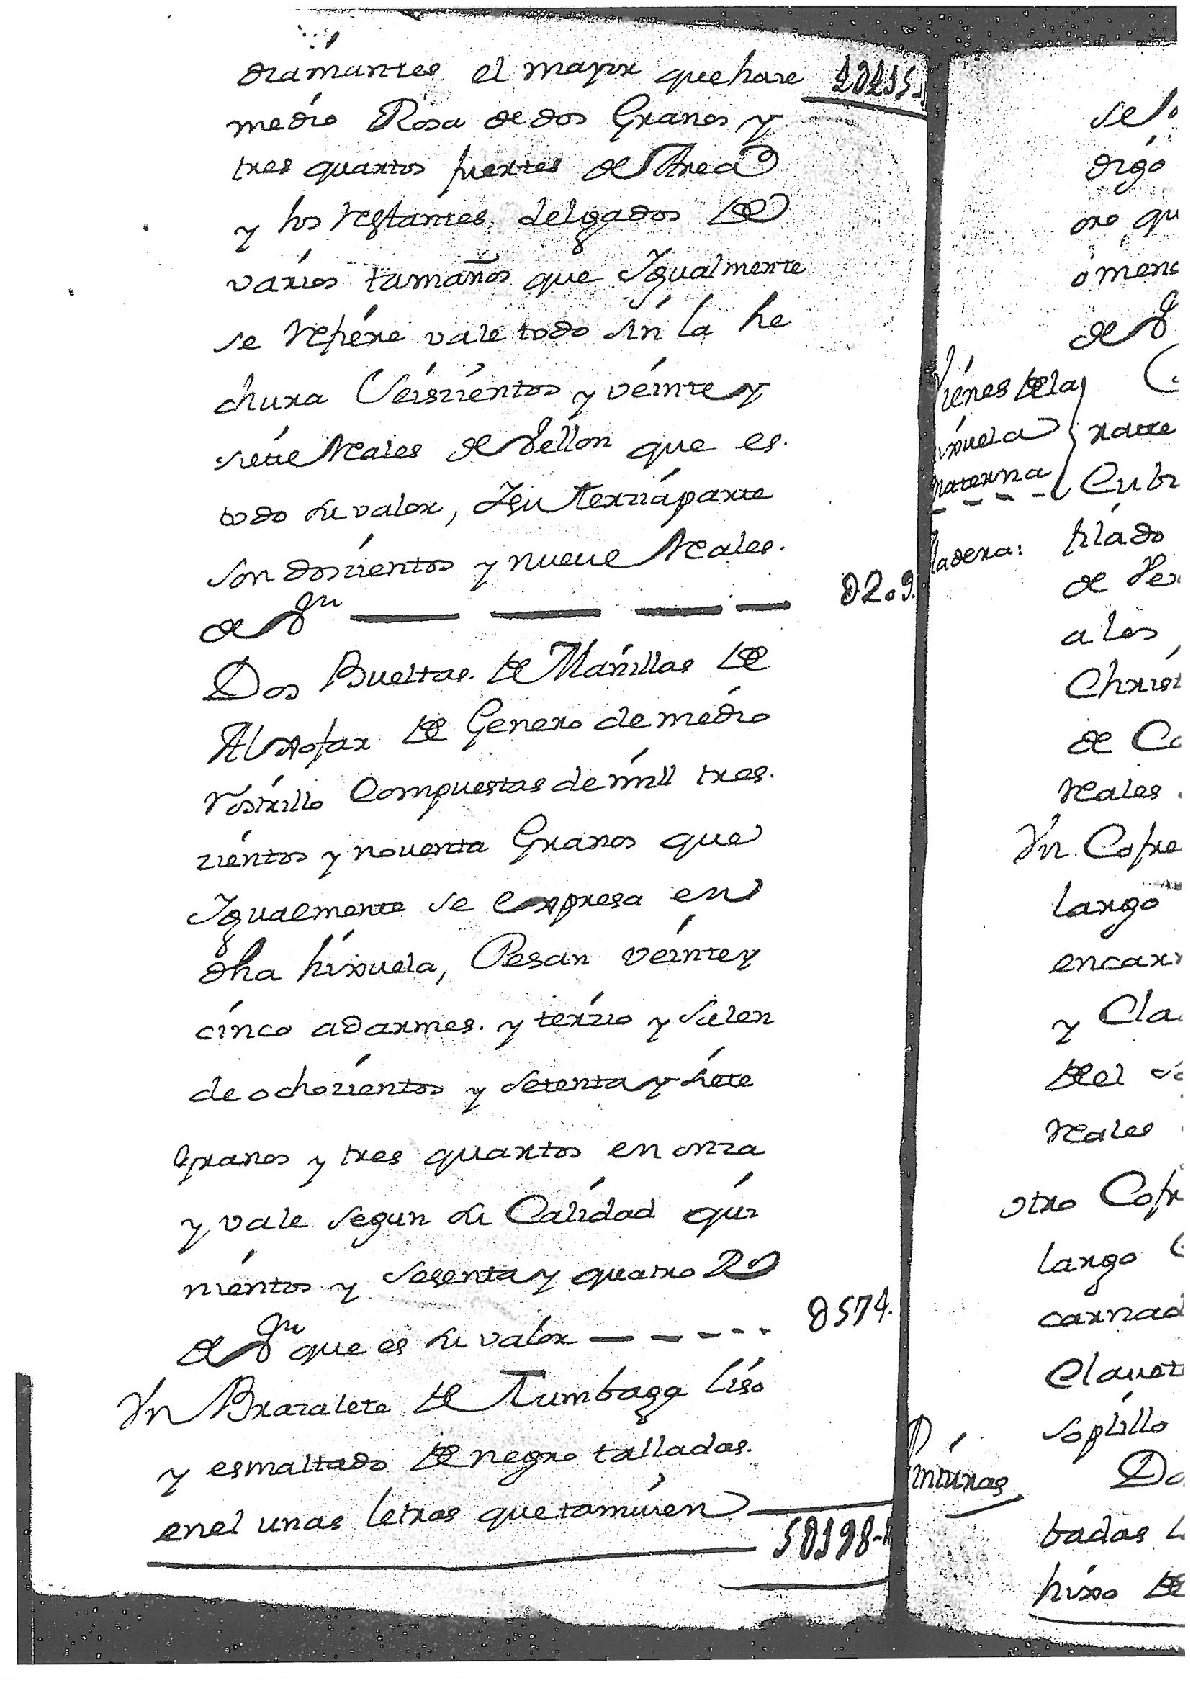 diamantes el mayor que hace
medio Rosa de dos Granos y
tres quartos fuertes de Area
y los restantes delgados de
varios tamaños que Igualmente
se refiere vale todo sin la he
chura Seiszientos y veinte y
siete Reales de Vellon que es
todo su valor, I su terzia parte
son doszientos y nueve Reales
de Vn 8209
Dos Bueltas de Manillas de
Aljofar de Genero de medio
rostrillo Compuestas de mill tres
zientos y noventa Granos que
Igualmente se expresa en
dha hixuela, Pesan veinte y
cinco adarmes y terzio y salen
de ochozientos y setenta y siete
granos y tres quartos en onza
y vale segun su Calidad qui
nientos y sesenta y quatro Rs
de Vn que es su valor 8574
Vn Brazalete de Tumbaga liso
y esmaltado de negro talladas
en el unas letras que tamvien
58598
se lo
digo
oro qu
o meno
de V
Vienes de la
hixuela
materna
Cubi
Madera: hilado
de Ver
a los
Christ
de Co
reales
Vn Cofre
largo
encarn
y Cla
del so
reales
otro Cofr
largo
carnad
Clavet
soplillo
Pinturas Do
badas
hixo de